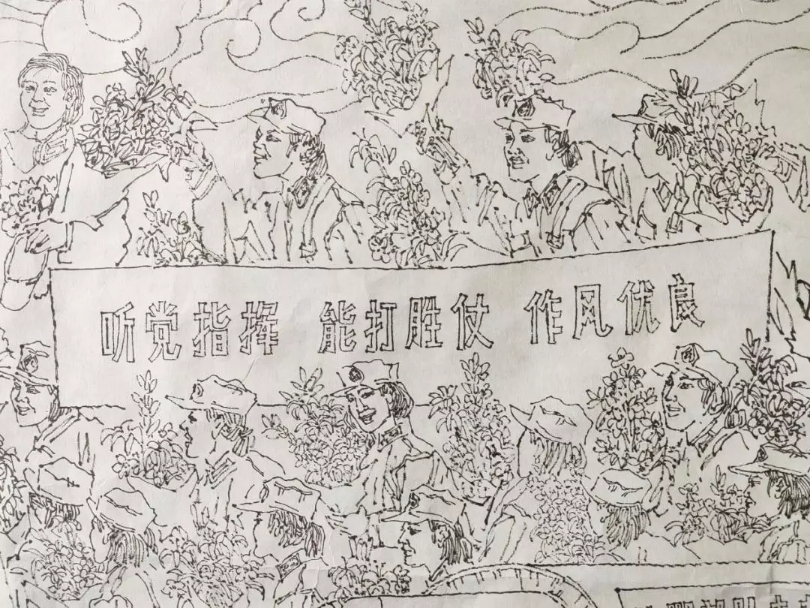 听党指挥 能打胜仗 作风优良